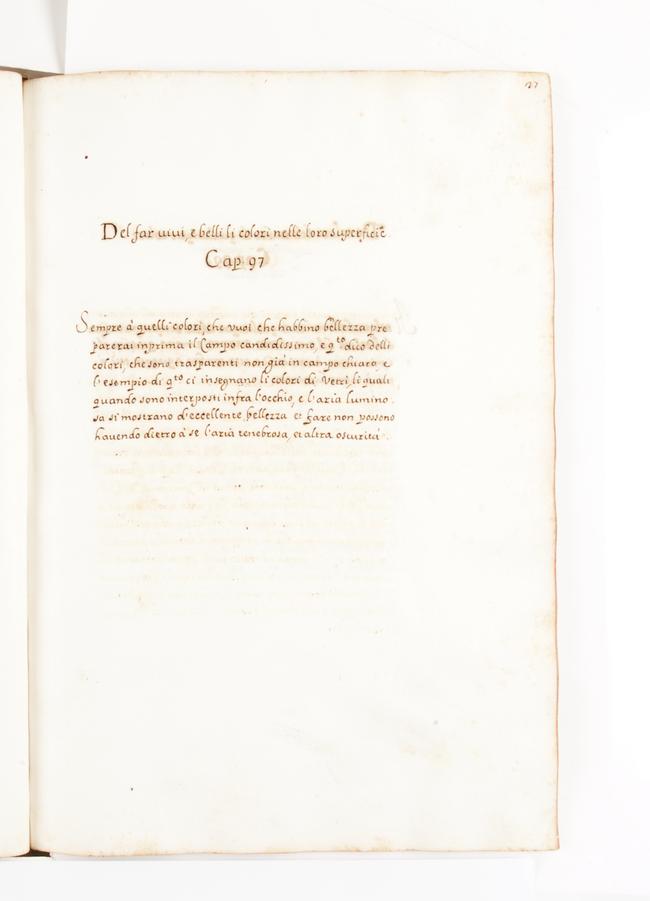 27
Del far uiui, e belli li colori nelle loro superficie.
Cap 97
Sempre à quelli colori, che vuoi che habbino bellezza pre
parerai inprima il Campo candidissimo, e q.to dico delli
colori, che sono trasparenti non già in campo chiaro, e
l'esempio di q.to ci insegnano li colori di Vetri, li quali
quando sono interposti infra l'occhio, e l'aria lumino.
sa si mostrano d'eccellente bellezza et fare non possono
hauendo dietro à se l'aria tenebrosa, et altra oscurità.